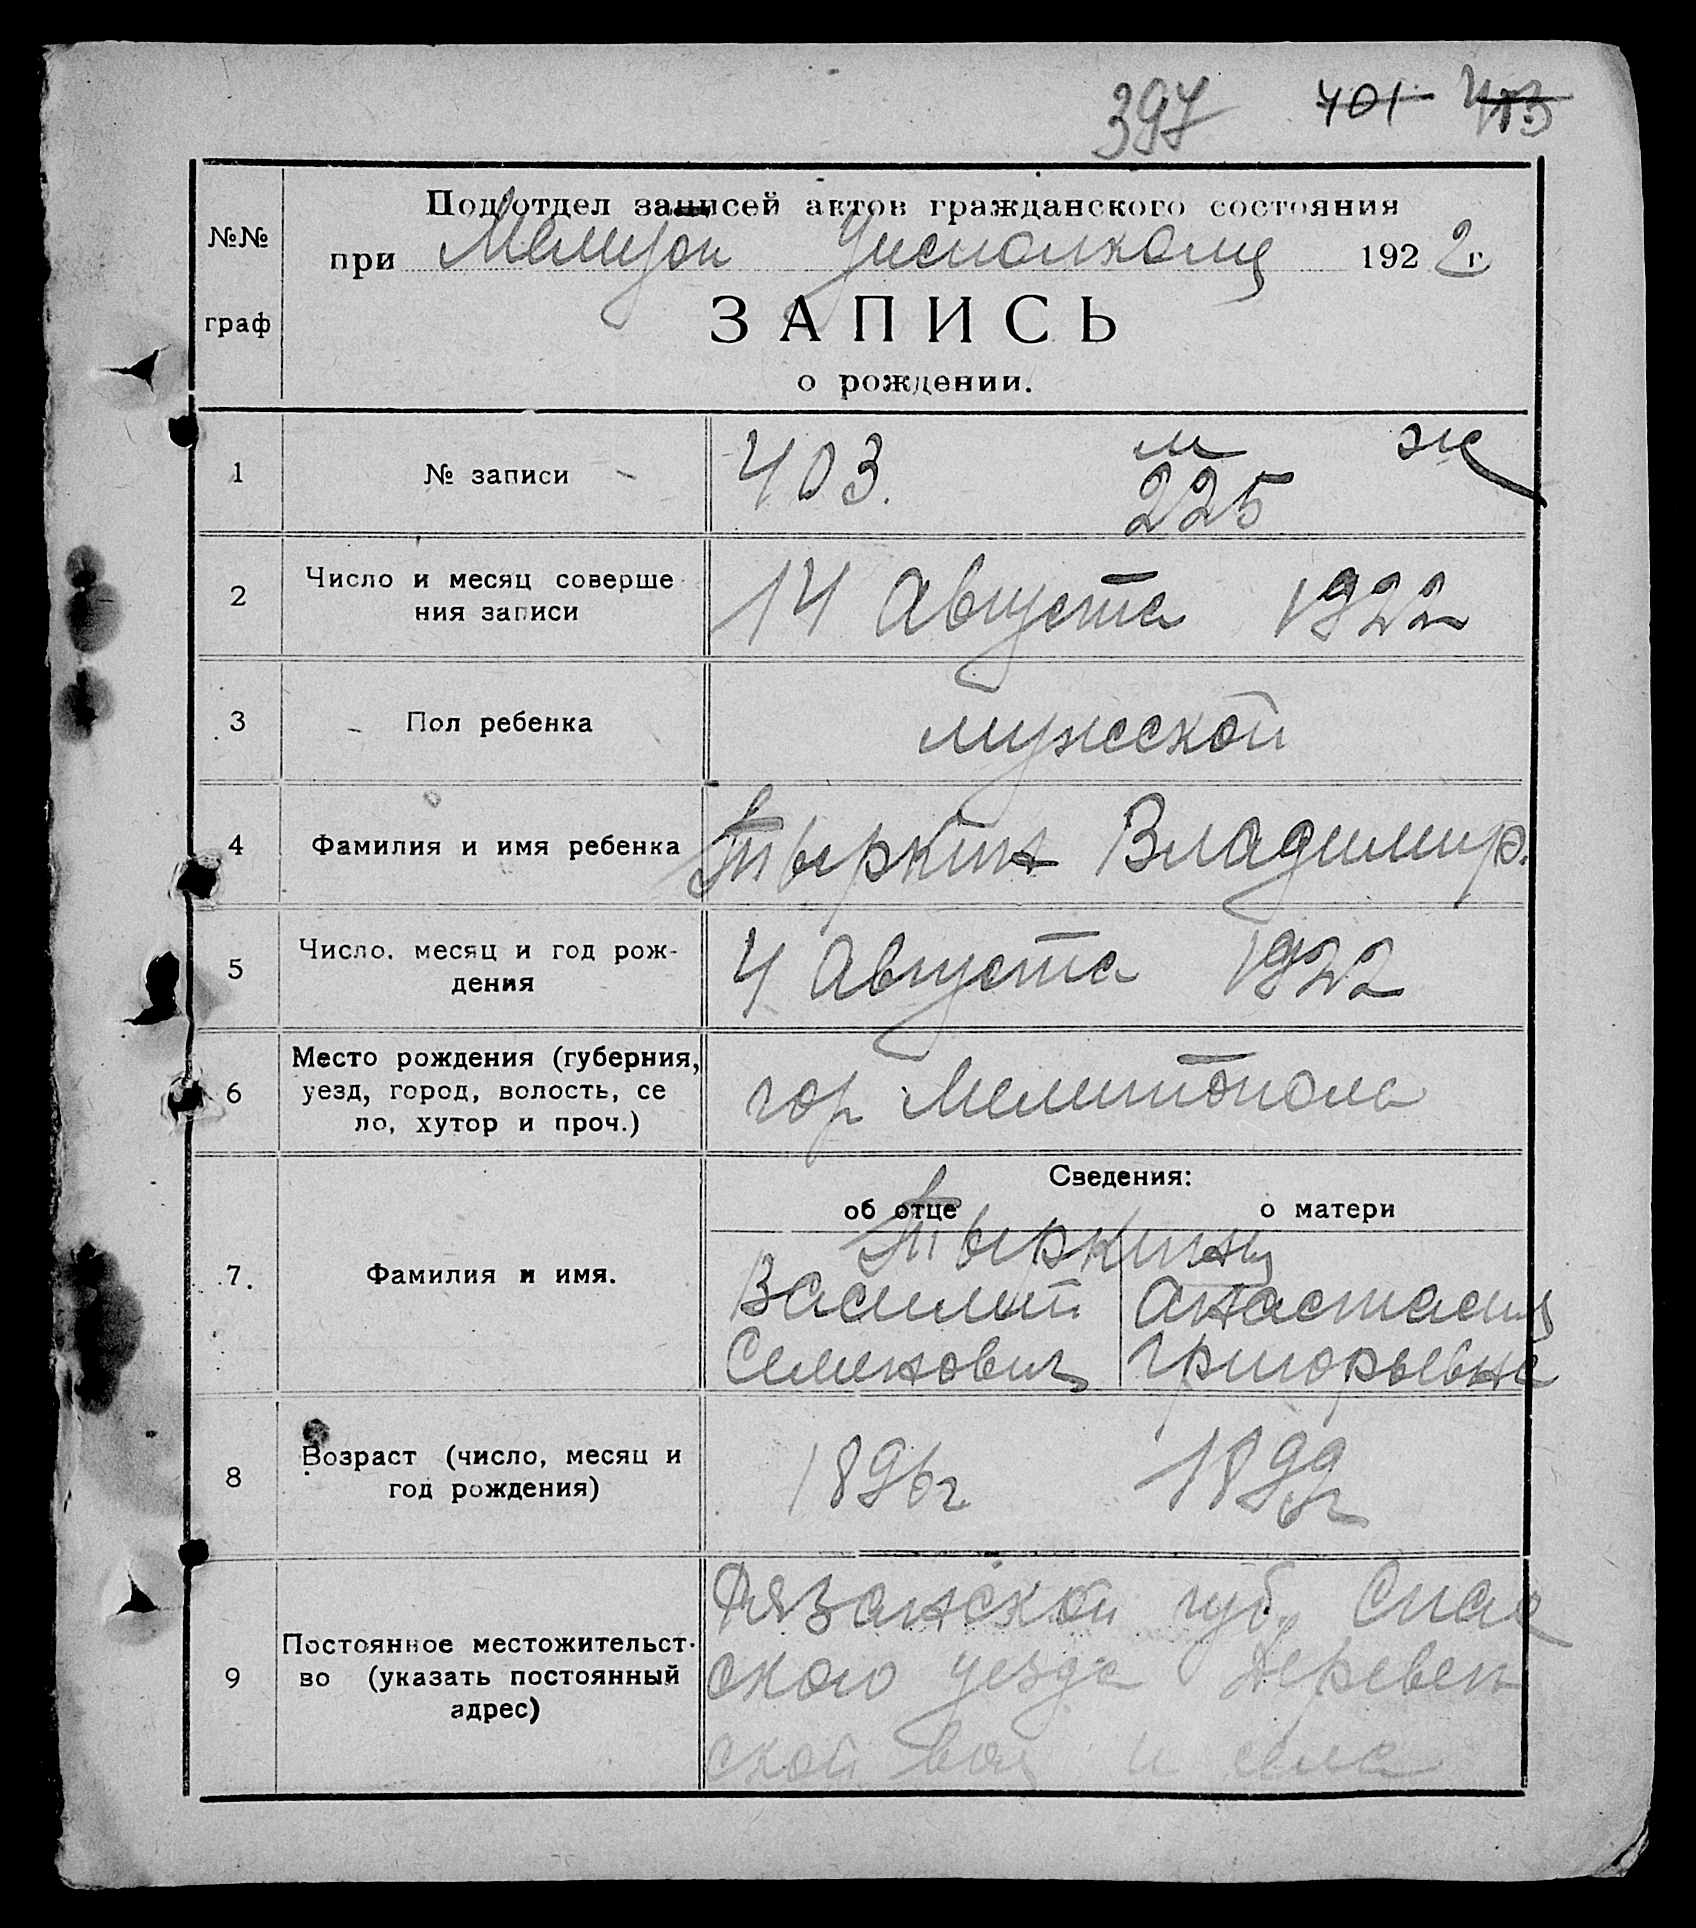 397 401 403
№№ граф
Подотдел записей актов гражданского состояния
при Мелиуои Уисполкоме 1922 г.
ЗАПИСЬ
о рождении.
1 № записи 403. м 225 ж
2 Число и месяц соверше
ния записи
14 Августа 1922
3 Пол ребенка мужской
4 Фамилия и имя ребенка Тыркин Владимир.
5 Число, месяц и год рож-
дения
4 Августа 1922
6 Место рождения (губерния,
уезд, город, волость, се
ло, хутор и проч.)
гор Мелитополь
Сведения:
об отце о матери
7. Фамилия и имя.
Тыркины
Василий Анастасия
Семенович Григорьевна
8 Возраст (число, месяц и
год рождения)
1896г 1899г
9 Постоянное местожительст-
во (указать постоянный
адрес)
Рязанской губ, Спас
ского уезда Деревен
ской вол и села